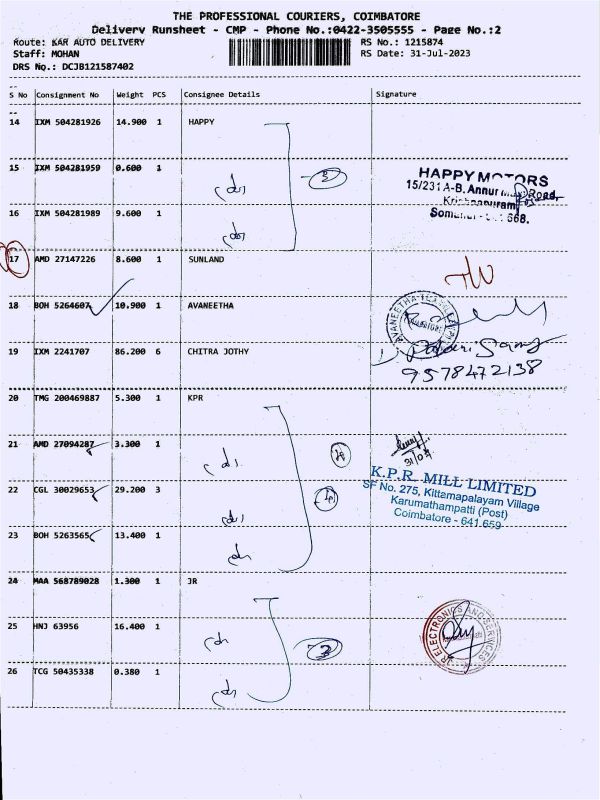 THE PROFESSIONAL COURIERS, COIMBATORE
Delivery Runsheet - CMP - Phone No.:0422-3505555 - Page No.:2
Route: KAR AUTO DELIVERY
RS No.: 1215874
Staff: MOHAN
RS Date: 31-Jul-2023
DRS No.: DCJB121587402
S No Consignment No Weight PCS Consignee Details Signature
14 IXM 504281926 14.900 1 HAPPY
15 IXM 504281959 0.600 1
HAPPY MOTORS
15/231 A-B, Annur Road,
16 IXM 504281989 9.600 1
17 AMD 27147226 8.600 1 SUNLAND
18 BOH 5264607 10.900 1 AVANEETHA
19 IXM 2241707 86.200 6 CHITRA JOTHY
9578472138
20 TMG 200469887 5.300 1 KPR
21 AMD 27094287 3.300 1
31/07
K.P.R. MILL LIMITED
SF No. 275, Kittamapalayam Village
22 CGL 30029653 29.200 3
Karumathampatti (Post)
Coimbatore - 641 659
23 BOH 5263565 13.400 1
24 MAA 568789028 1.300 1 JR
25 HNJ 63956 16.400 1
JR ELECTRONICS AND SERVICES
26 TCG 50435338 0.380 1